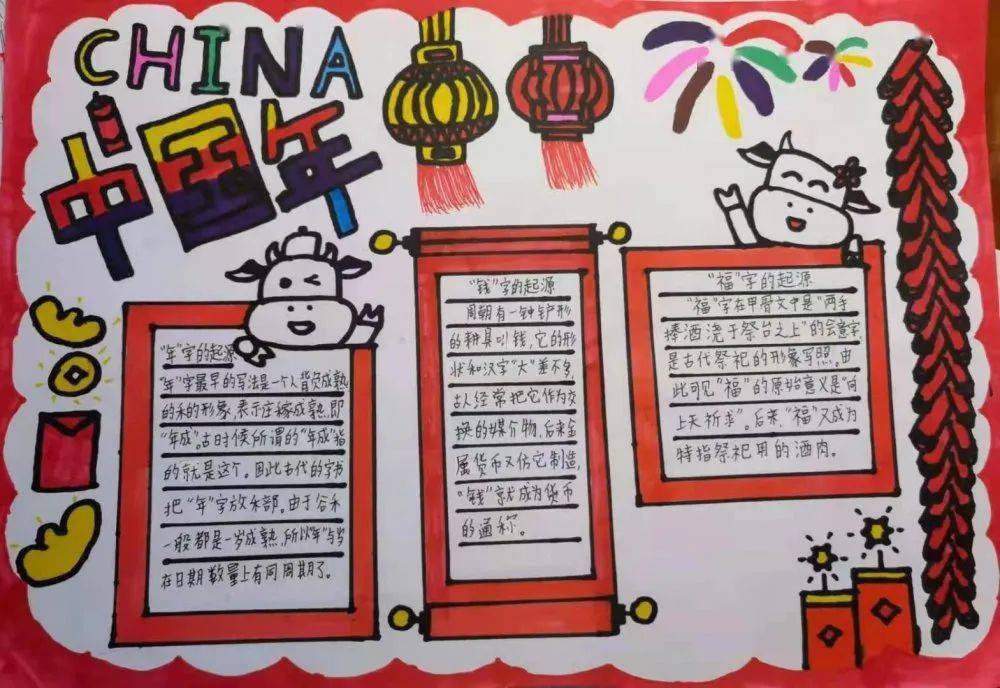 CHINA
中国年
"年"字的起源
"年"字最早的写法是一个人背负成熟
的禾的形象,表示庄稼成熟,即
"年成"。古时候所谓的"年成"指
的就是这个。因此古代的字书
把"年"字放禾部。由于谷禾
一般都是一岁成熟,所以"年"与岁
在日期数量上有同周期了。
"钱"字的起源
周朝有一种铲形
的耕具叫钱,它的形
状和汉字"大"差不多,
古人经常把它作为交
换的媒介物,后来金
属货币又仿它制造,
"钱"就成为货币
的通称。
"福"字的起源
"福"字在甲骨文中是"两手
捧酒浇于祭台之上"的会意字,
是古代祭祀的形象写照。由
此可见"福"的原始意义是"向
上天祈求"。后来,"福"又成为
特指祭祀用的酒肉。